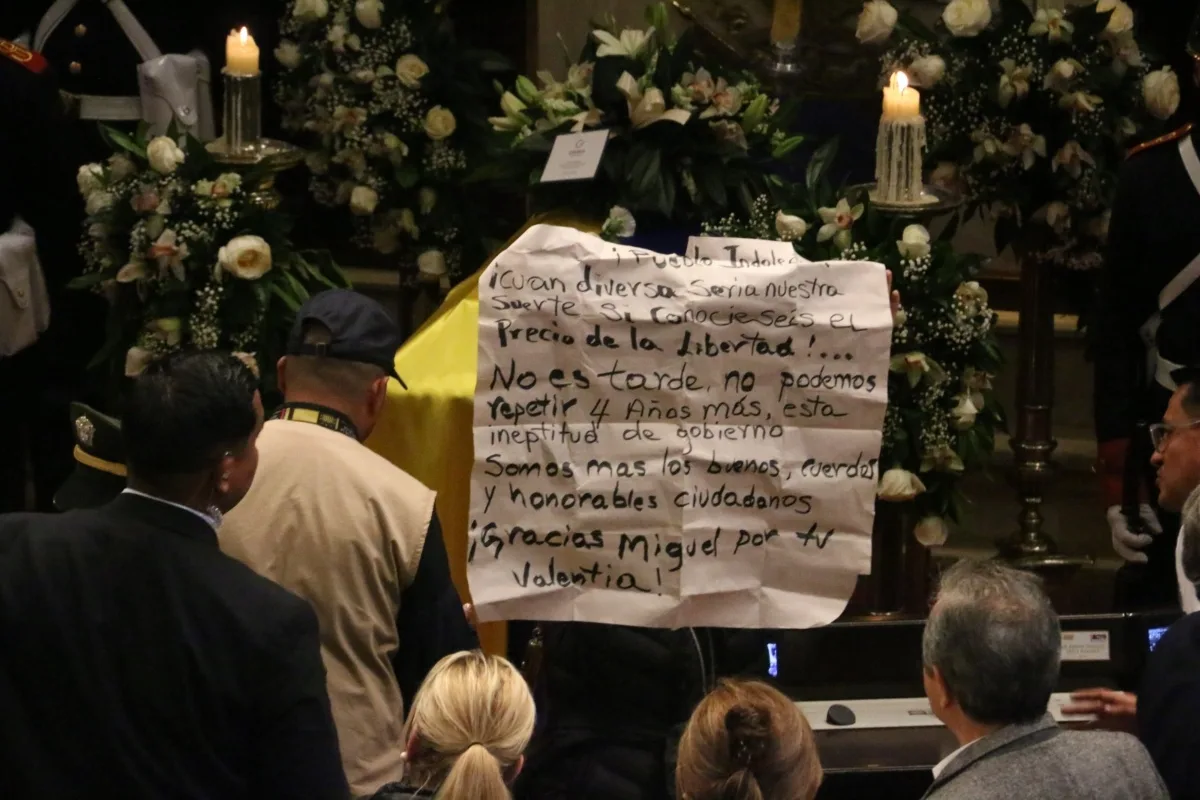 ¡Pueblo Indole
¡Cuan diversa seria nuestra
suerte si conocieseis el
Precio de la Libertad!...
No es tarde, no podemos
repetir 4 Años más, esta
ineptitud de gobierno
Somos mas los buenos, cuerdos
y honorables ciudadanos
¡Gracias Miguel por tu
Valentia!